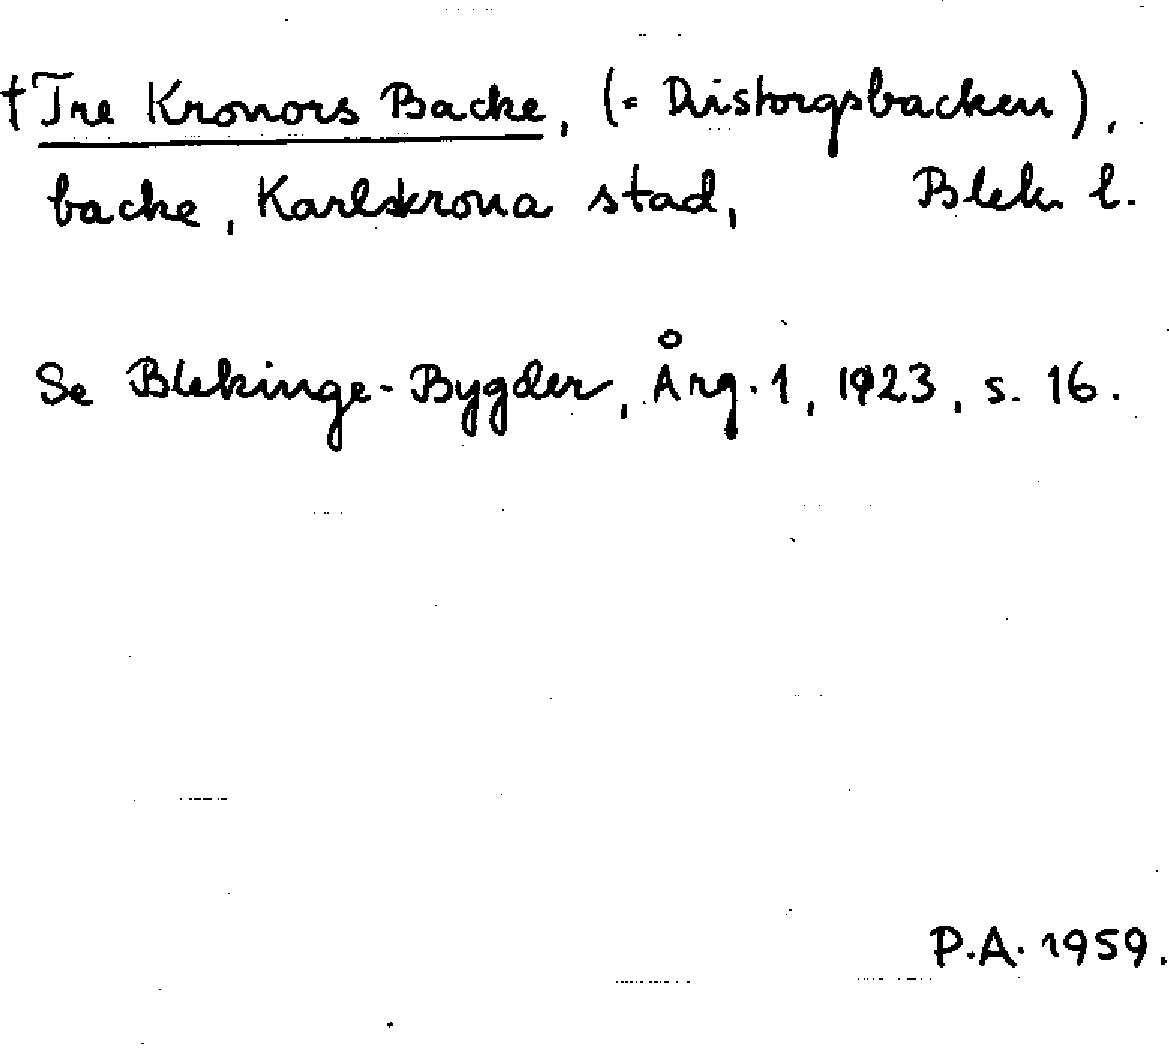 †Tre Kronors Backe, (= Distorgsbacken),
backe, Karlskrona stad, Blek. l.
Se Blekinge-Bygder, Årg. 1, 1923, s. 16.
P.A. 1959.